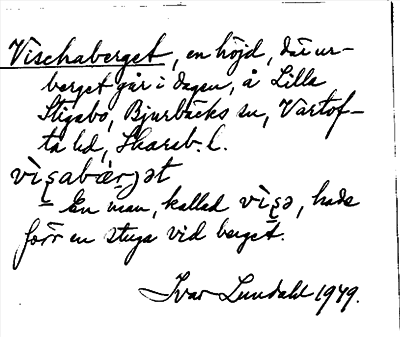 Vischaberget, en höjd, där ur-
berget går i dagen, å Lilla
Stigabo, Bjurbäcks sn, Vartof-
ta hd, Skarab. l.
vìʂabæ̀rjət
– En man, kallad vìʂə, hade
förr en stuga vid berget.
Ivar Lundahl 1949.